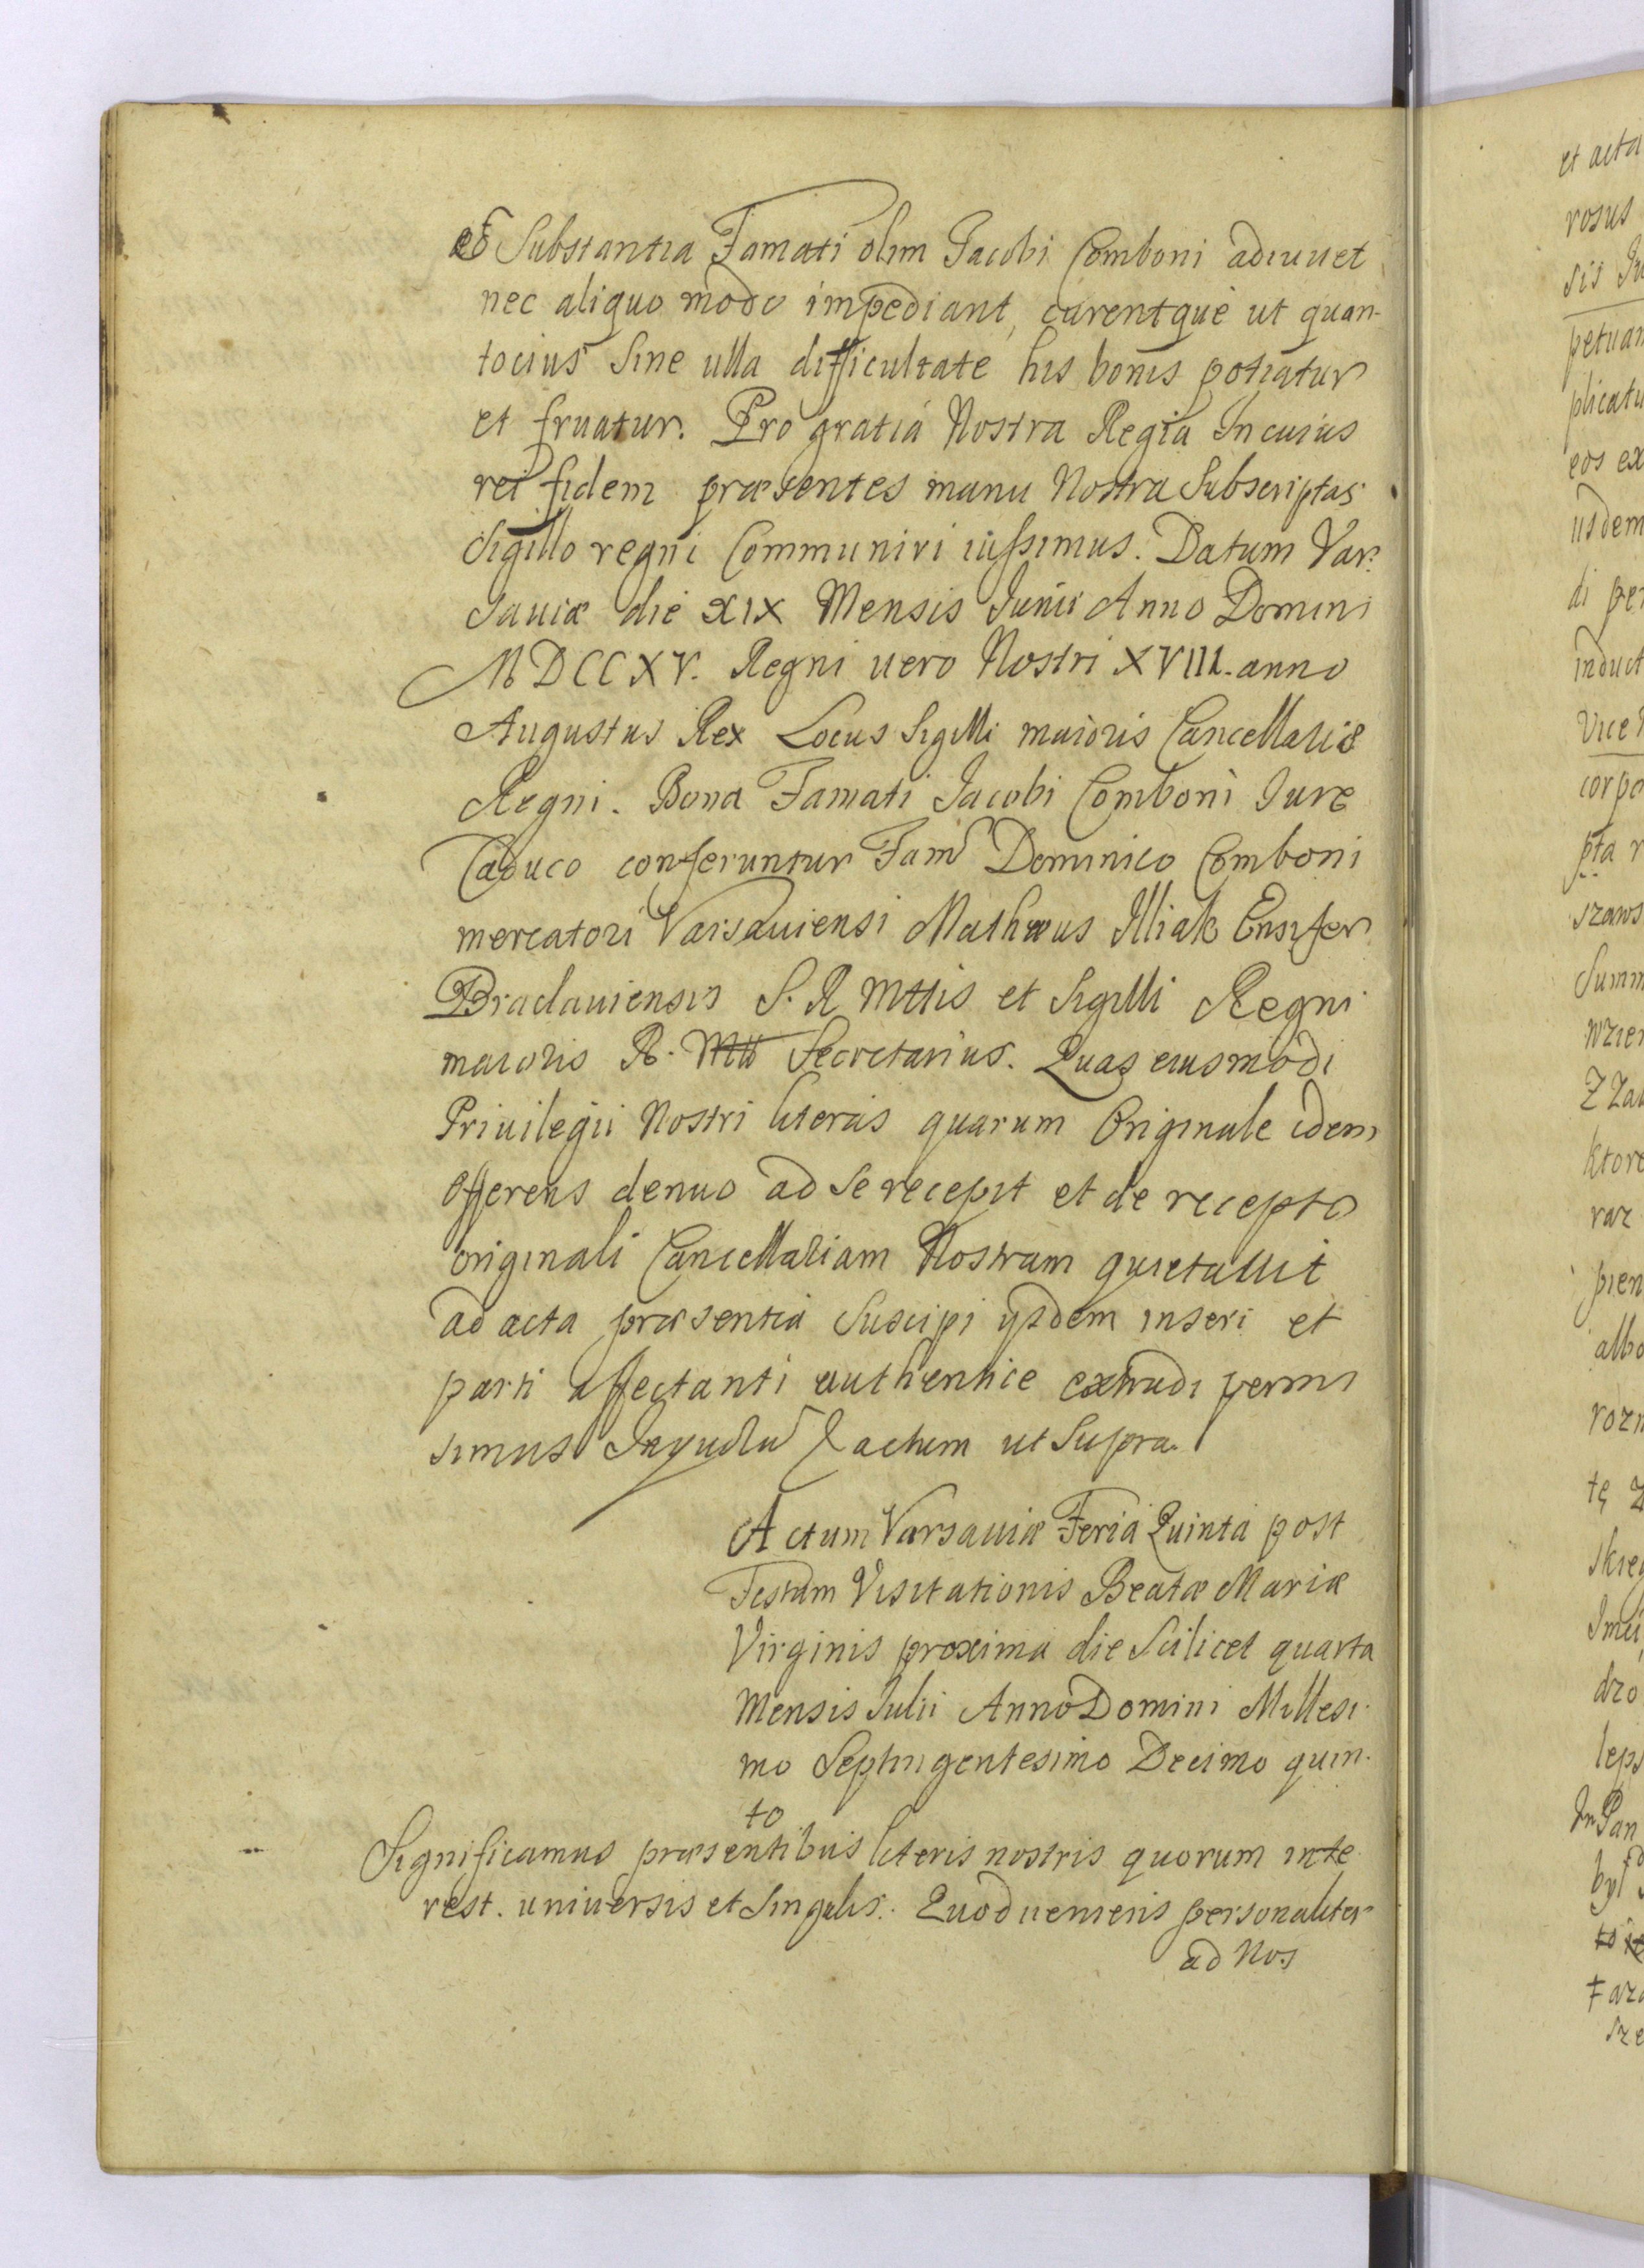 et Substantia Famati olim Jacobi Comboni adiuuet
nec aliquo modo impediant, curentque ut quan-
tocius Sine ulla difficultate his bonis potiatur
et fruatur. Pro gratia Nostra Regia In cuius
rei fidem præsentes manu Nostra Subscriptas
Sigillo regni Communiri iussimus. Datum Var-
sauiæ die XIX Mensis Junii Anno Domini
MDCCXV. Regni uero Nostri XVIII. anno
Augustus Rex Locus Sigilli maioris Cancellariæ
Regni. Bona Famati Jacobi Comboni Jure
Caduco conferuntur Fam Dominico Comboni
mercatori Varsauiensi Mathæus Illiak Ensifer
Braclauiensis S. R Mttis et Sigilli Regni
maioris R. Mtt Secretarius. Quas eiusmodi
Priuilegii Nostri literas quarum Originale idem
Offerens denuo ad Se recepit et de recepto
originali Cancellariam Nostram quietauit
ad acta præsentia Suscipi ysdem inseri et
parti affectanti authentice extradi permi
simus actum ut Supra.
Actum Varsauiæ Feria Quinta post
Festum Visitationis Beatæ Mariæ
Virginis proxima die Scilicet quarta
Mensis Julii Anno Domini Millesi-
mo Septingentesimo Decimo quin-
to
Significamus præsentibus literis nostris quorum inte
rest. uniuersis et Singulis. Quod ueniens personaliter
ad Nos
et acta
rosus
sis
petuam
plicatu
eos ex
iisdem
di per
induct
Vice
corpo
pta r
szaws
Summ
wzien
ktore
raz
pien
albo
rozn
tę
skieg
dzo
leps
Pan
był